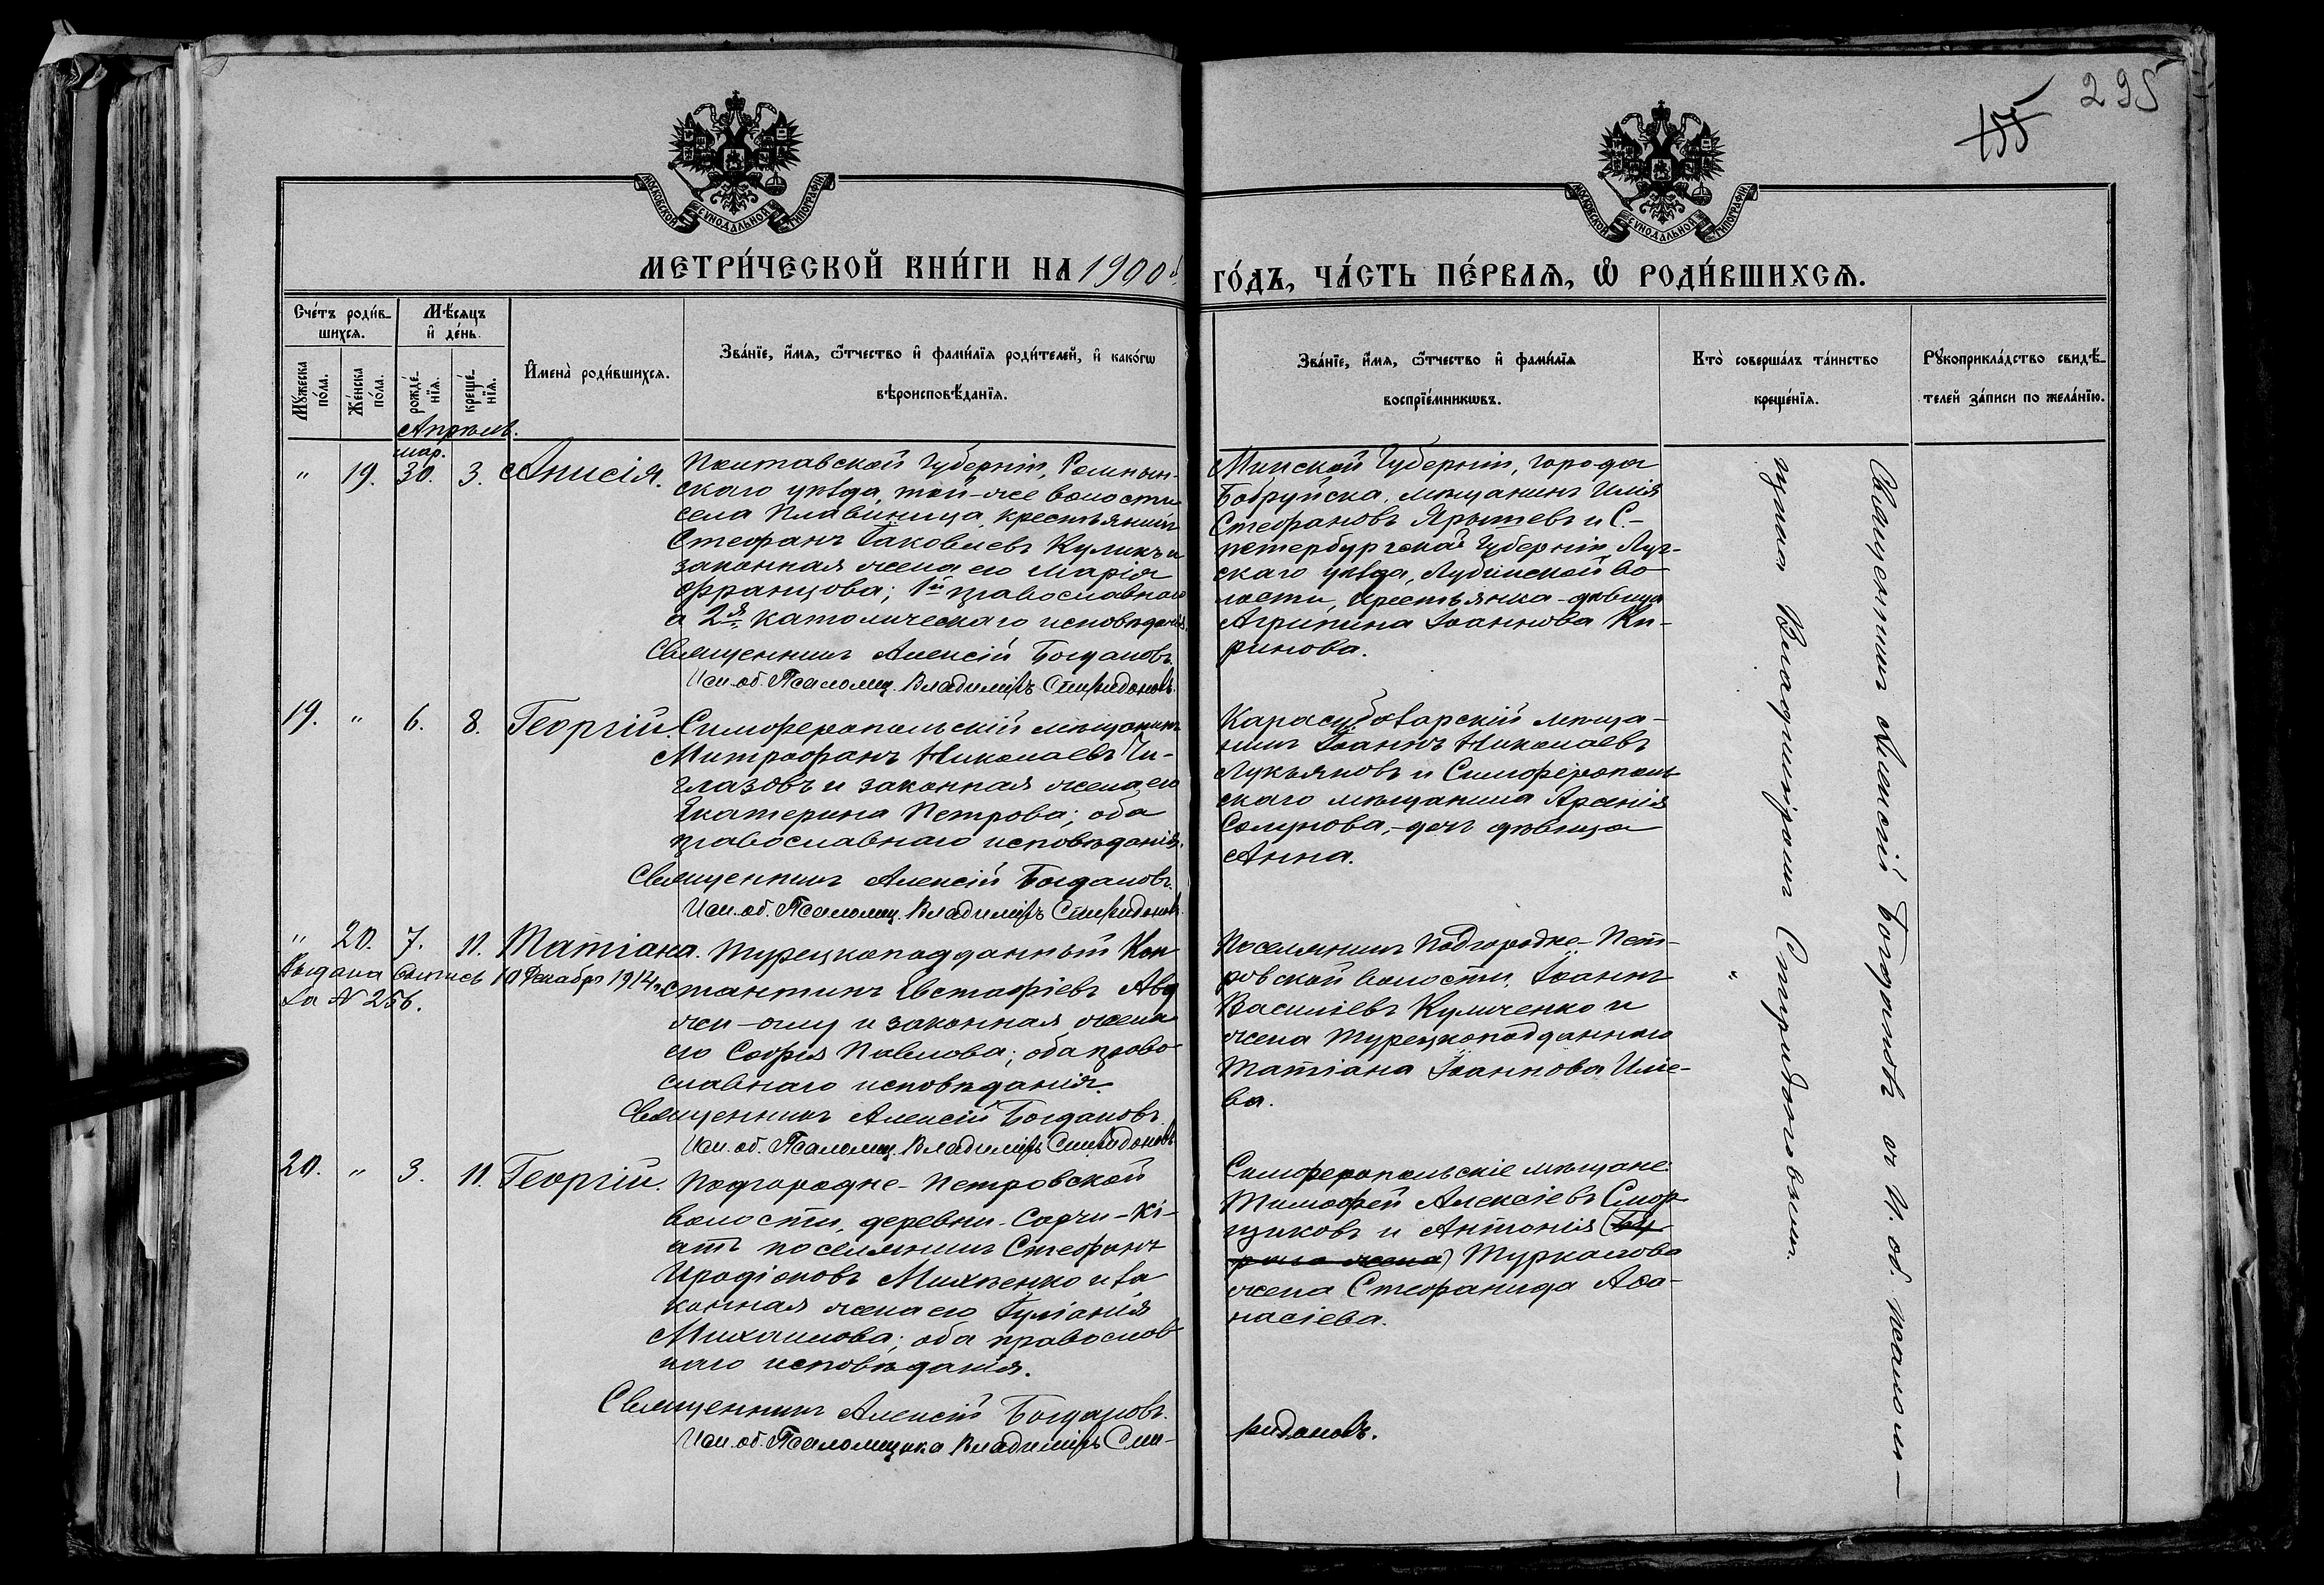 295
155
МОСКОВСКОЙ СѴНОДАЛЬНОЙ ТИПОГРАФІИ
МОСКОВСКОЙ СѴНОДАЛЬНОЙ ТИПОГРАФІИ
МЕТРИ́ЧЕСКОЙ КНИ́ГИ НА 1900 й
ГО́ДЪ, ЧА́СТЬ ПЕ́РВАѦ, Ѡ҆ РОДИ́ВШИХСѦ.
Сче́тъ роди́в-
шихсѧ.
Мѣ́сѧцъ
и҆ де́нь.
Мꙋ́жеска
по́ла.
Же́нска
по́ла.
рожде́-
нїѧ.
креще́-
нїѧ.
И҆мена̀ роди́вшихсѧ.
Зва́нїе, и҆́мѧ, ѻ҆́тчество и҆ фами́лїѧ роди́телей, и҆ како́гѡ
вѣроисповѣ́данїѧ.
Зва́нїе, и҆́мѧ, ѻ҆́тчество и҆ фами́лїѧ
воспрїе́мникѡвъ.
Кто̀ соверша́лъ та́инство
креще́нїѧ.
Рꙋкоприкла́дство свидѣ́-
телей за́писи по жела́нїю.
Апрѣль.
мар.
" 19. 30. 3. Анисія.
Полтавской губерніи, Роменн-
скаго уѣзда, той-же волости
села Плавинища, крестьянинъ
Стефанъ Іаковлевъ Куликъ и
законная жена его Марія
Францова; 1й православнаго
а 2я католическаго исповѣданія.
Священникъ Алексій Богдановъ.
Исп. об. Псаломщ. Владиміръ Спиридоновъ.
Минской губерніи, города
Бобруйска, мѣщанинъ Илія
Стефановъ Ярышевъ и С.-
петербургской губерніи, Луж-
скаго уѣзда, во-
лости, крестьянка-дѣвица
Агрипина Іоаннова Ки-
ринова.
19. " 6. 8. Георгій.
Симферопольскій мѣщанинъ
Митрофанъ Николаевъ Чи-
глазовъ и законная жена его
Екатерина Петрова; оба
православнаго исповѣданія.
Священникъ Алексій Богдановъ.
Исп. об. Псаломщ. Владиміръ Спиридоновъ.
Карасубазарскій мѣща-
нинъ Іоаннъ Николаевъ
Лукьяновъ и Симферополь-
скаго мѣщанина Арсенія
Солунова,-дочь дѣвица
Анна.
" 20. 7. 11. Татіана.
Выдана выпись 10 Декабря 1914 г.
за N 256.
Турецкоподданный Кон-
стантинъ Евстафіевъ Авд
жи-оглу и законная жена
его Софія Павлова; оба право-
славнаго исповѣданія.
Священникъ Алексій Богдановъ.
Исп. об. Псаломщ. Владиміръ Спиридоновъ
Поселянинъ Подгородне-Пет-
ровской волости, Іоаннъ
Василіевъ Куличенко и
жена турецкоподданнаго
Татіана Іоаннова Илие-
ва.
20. " 3. 11. Георгій.
Подгородне-Петровской
волости, деревни Сарчи-Кі-
атъ поселянинъ Стефанъ
Иродіоновъ Михненко и за
конная жена его Іуліанія
Михаилова; оба православ
наго исповѣданія.
Священникъ Алексій Богдановъ.
Исп. об. Псаломщика Владиміръ Спи-
ридоновъ.
Симферопольскіе мѣщане:
Тимофей Алексіевъ Смор-
щиковъ и Антонія
жена) Туркалова
жена Стефанида Аѳа-
насіева.
Священникъ Алексій Богдановъ съ И. об. псаломщ-
щика Владиміромъ Спиридоновымъ.
"